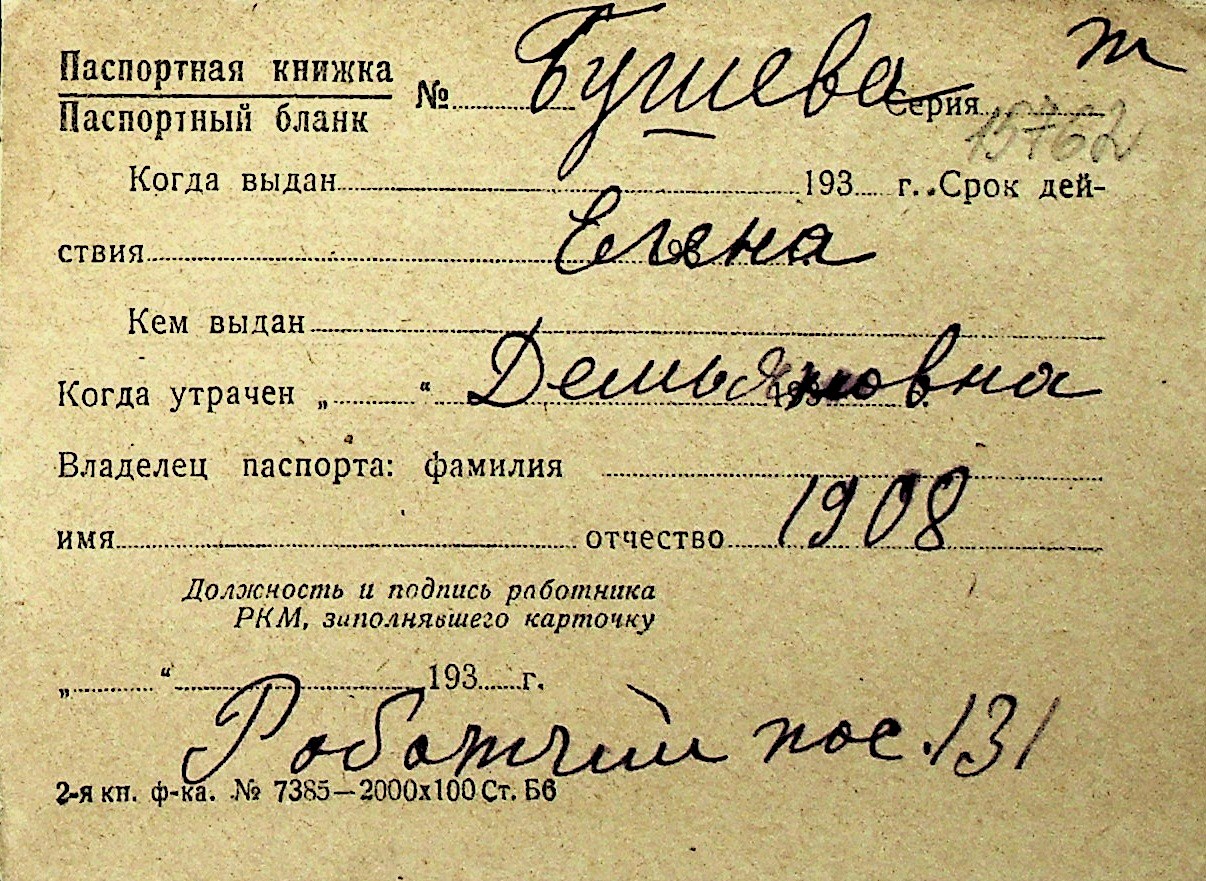 Паспортная книжка
Паспортный бланк
№ Бушева Серия т
15762
Когда выдан 193 г. Срок дей-
ствия Елена
Кем выдан
Когда утрачен „ “ Демьяновна
Владелец паспорта: фамилия
имя отчество 1908
Должность и подпись работника
РКМ, заполнявшего карточку
„ “ 193 г.
Рабочий пос. 131
2-я кн. ф-ка. № 7385—2000х100 Ст. Бб